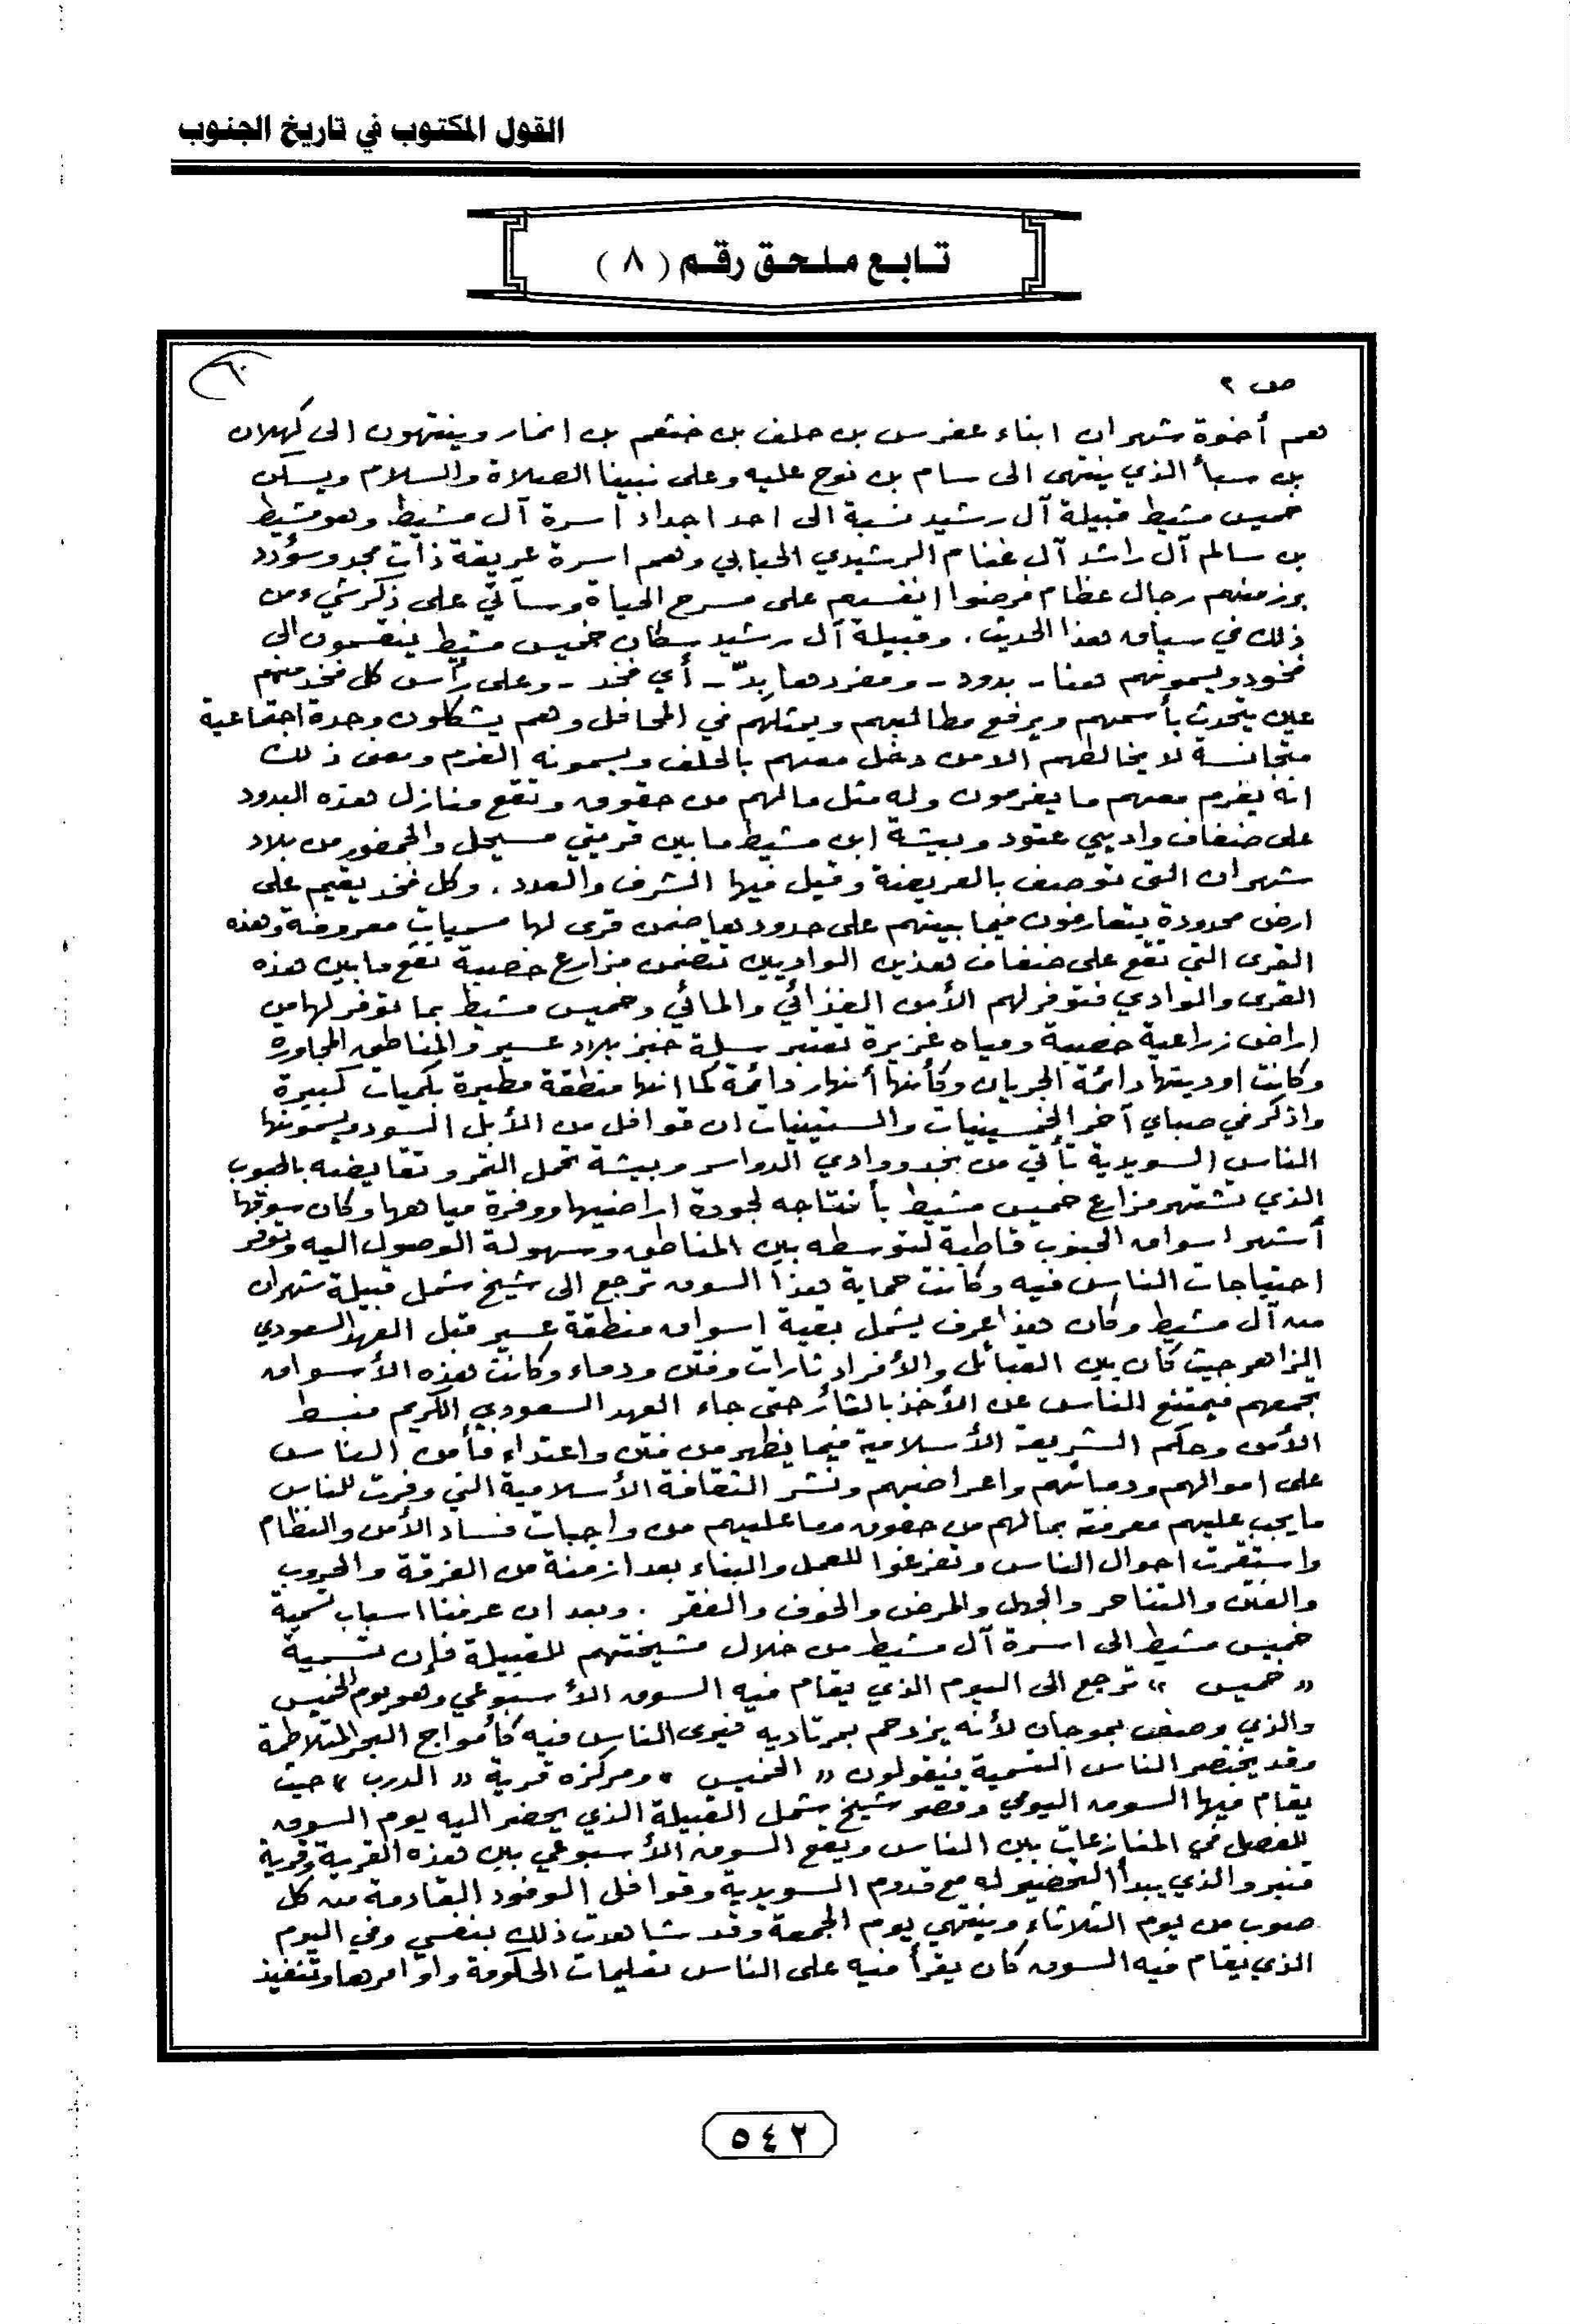 القول المكتوب في تاريخ الجنوب
تابع ملحق رقم (٨)
ص ٢
هم أخوة شهران ابناء عفرس بن حلف بن خثعم بن انمار وينتهون الى كهلان
بن سبأ الذي ينتهي الى سام بن نوح عليه وعلى نبينا الصلاة والسلام ويسكن
خميس مشيط قبيلة آل رشيد نسبة الى احد اجداد اسرة آل مشيط وهو مشيط
بن سالم آل راشد آل غنام الرشيدي الحبابي وهم اسرة عريقة ذات مجد وسؤدد
برز منهم رجال عظام فرضوا انفسهم على مسرح الحياة وسآتي على ذكر شيء من
ذلك في سياق هذا الحديث . وقبيلة آل رشيد سكان خميس مشيط ينقسمون الى
فخوذ ويسمونهم هنا - بدود - ومفردها بدّ - أي فخذ - وعلى رأس كل فخذ منهم
عين يتحدث بأسمهم ويرفع مطالبهم ويمثلهم في المحافل وهم يشكلون وحدة اجتماعية
متجانسة لا يخالطهم الا من دخل معهم بالحلف ويسمونه الغرم ومعنى ذلك
انه يغرم معهم ما يغرمون وله مثل مالهم من حقوق وتقع منازل هذه البدود
على ضفاف واديي عتود وبيشة ابن مشيط ما بين قريتي مسيحل والمحضور من بلاد
شهران التي توصف بالعريضة وقيل فيها الشرف والعدد . وكل فخذ يقيم على
ارض محدودة يتعارفون فيما بينهم على حدودها ضمن قرى لها مسميات معروفة وهذه
القرى التي تقع على ضفاف هذين الواديين تتضمن مزارع خصبة تقع ما بين هذه
القرى والوادي فتوفر لهم الأمن الغذائي والمائي وخميس مشيط بما توفر لها من
اراض زراعية خصبة ومياه غزيرة تعتبر سلة خبز بلاد عسير والمناطق المجاورة
وكانت اوديتها دائمة الجريان وكأنها أنهار دائمة كما انها منطقة مطيرة بكميات كبيرة
واذكر في صباي آخر الخمسينيات والستينيات ان قوافل من الأبل السود ويسمونها
الناس السويدية تأتي من نجد ووادي الدواسر وبيشة تحمل التمر وتقايضه بالحبوب
الذي تشتهر مزارع خميس مشيط بأنتاجه لجودة اراضيها ووفرة مياهها وكان سوقها
أشهر اسواق الجنوب قاطبة لتوسطه بين المناطق وسهولة الوصول اليه وتوفر
احتياجات الناس فيه وكانت حماية هذا السوق ترجع الى شيخ شمل قبيلة شهران
من آل مشيط وكان هذا عرف يشمل بقية اسواق منطقة عسير قبل العهد السعودي
الزاهر حيث كان بين القبائل والأفراد ثارات وفتن ودماء وكانت هذه الأسواق
تجمعهم فيمتنع الناس عن الأخذ بالثأر حتى جاء العهد السعودي الكريم فبسط
الأمن وحكم الشريعة الأسلامية فيما يظهر من فتن واعتداء فأمن الناس
على اموالهم ودمائهم واعراضهم ونشر الثقافة الأسلامية التي وفرت للناس
ما يجب عليهم معرفته بمالهم من حقوق وما عليهم من واجبات فساد الأمن والنظام
واستقرت احوال الناس وتفرغوا للعمل والبناء بعد ازمنة من الفرقة والحروب
والفتن والتناحر والجهل والمرض والخوف والفقر . وبعد ان عرفنا اسباب تسمية
خميس مشيط الى اسرة آل مشيط من خلال مشيختهم للقبيلة فإن تسمية
« خميس » ترجع الى اليوم الذي يقام فيه السوق الأسبوعي وهو يوم الخميس
والذي وصف بموجان لأنه يزدحم بمرتاديه فيرى الناس فيه كأمواج البحر المتلاطمة
وقد يختصر الناس التسمية فيقولون « الخميس » ومركزه قرية « الدرب » حيث
يقام فيها السوق اليومي وقصر شيخ شمل القبيلة الذي يحضر اليه يوم السوق
للفصل في المنازعات بين الناس ويقع السوق الأسبوعي بين هذه القرية وقرية
قنبر والذي يبدأ التحضير له مع قدوم السويدية وقوافل الوفود القادمة من كل
صوب من يوم الثلاثاء وينتهي يوم الجمعة وقد شاهدت ذلك بنفسي وفي اليوم
الذي يقام فيه السوق كان يقرأ فيه على الناس تعليمات الحكومة واوامرها وتنفيذ
٥٤٢